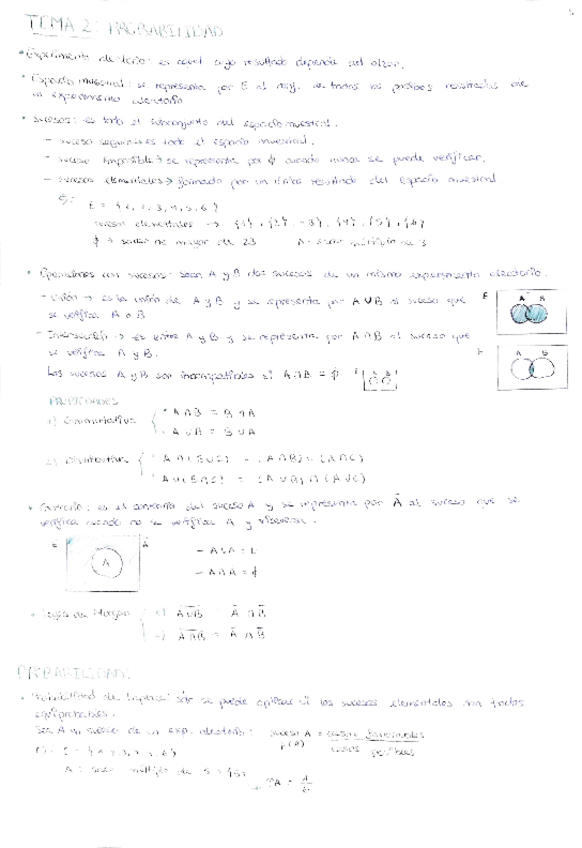 TEMA 2: PROBABILIDAD
* Experimento aleatorio: es aquel cuyo resultado depende del azar.
* Espacio muestral: se representa por E al conj. de todos los posibles resultados de
un experimento aleatorio
* Sucesos: es todo el subconjunto del espacio muestral.
- suceso seguro: es todo el espacio muestral.
- suceso imposible → se representa por ϕ cuando nunca se puede verificar.
- sucesos elementales → formado por un único resultado del espacio muestral
Ej: E = {1, 2, 3, 4, 5, 6}
sucesos elementales → {1}, {2}, {3}, {4}, {5}, {6}
ϕ → sacar no mayor de 23 A = sacar múltiplo de 3
* Operaciones con sucesos: sean A y B dos sucesos de un mismo experimento aleatorio.
- Unión → es la unión de A y B y se representa por A ∪ B al suceso que
se verifica A o B
E A B
- Intersección → es entre A y B y se representa por A ∩ B al suceso que
se verifica A y B.
A B
Los sucesos A y B son incompatibles si A ∩ B = ϕ
PROPIEDADES
1) Conmutativa { * A ∩ B = B ∩ A
* A ∪ B = B ∪ A
2) Distributiva { * A ∩ (B ∪ C) = (A ∩ B) ∪ (A ∩ C)
* A ∪ (B ∩ C) = (A ∪ B) ∩ (A ∪ C)
* Contrario: es el contrario del suceso A y se representa por Ā al suceso que se
verifica cuando no se verifica A y viceversa.
E A Ā
- A ∪ Ā = E
- A ∩ Ā = ϕ
* Leyes de Morgan
PROBABILIDAD:
* Probabilidad de Laplace: sólo se puede aplicar si los sucesos elementales son todos
equiprobables.
Sea A un suceso de un exp. aleatorio: suceso A = casos favorables / casos posibles
P(A)
Ej: E = {1, 2, 3, 4, 5, 6}
A: sacar múltiplo de 5 = {5}